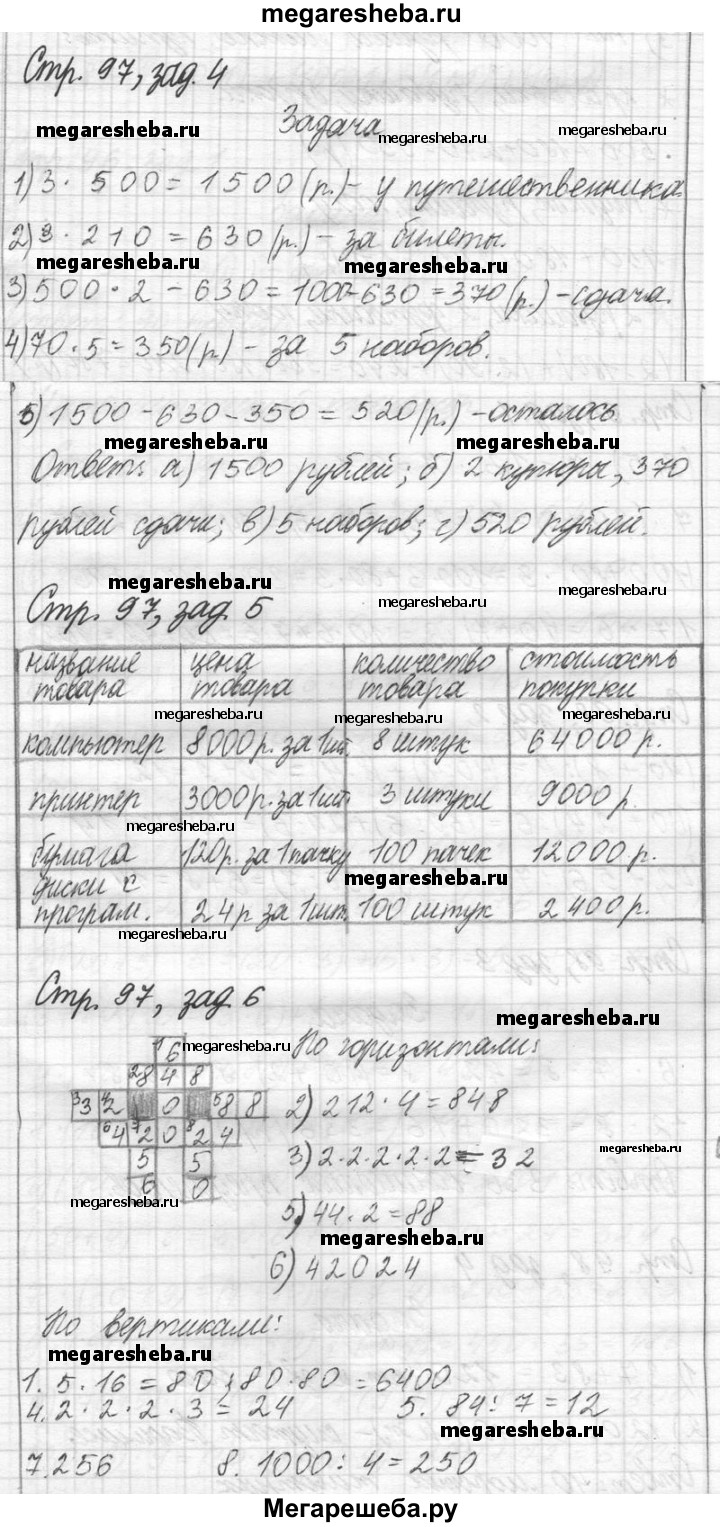 megaresheba.ru
Стр. 97, зад. 4
Задача
megaresheba.ru megaresheba.ru megaresheba.ru
1) 3 · 500 = 1500 (р.) - у путешественника.
2) 3 · 210 = 630 (р.) - за билеты.
megaresheba.ru megaresheba.ru
3) 500 · 2 - 630 = 1000-630 = 370 (р.) - сдача.
4) 70 · 5 = 350 (р.) - за 5 наборов.
5) 1500 - 630 - 350 = 520 (р.) - осталось
megaresheba.ru megaresheba.ru
Ответ: а) 1500 рублей; б) 2 купюры, 370
рублей сдачи; в) 5 наборов; г) 520 рублей.
megaresheba.ru megaresheba.ru megaresheba.ru
Стр. 97, зад. 5
название товара цена товара количество товара стоимость покупки
megaresheba.ru megaresheba.ru megaresheba.ru
компьютер 8000 р. за 1 шт. 8 штук 64000 р.
принтер 3000 р. за 1 шт. 3 штуки 9000 р.
megaresheba.ru
бумага 120 р. за 1 пачку 100 пачек 12000 р.
megaresheba.ru
диски с програм. 24 р за 1 шт. 100 штук 2400 р.
megaresheba.ru
Стр. 97, зад. 6
megaresheba.ru
По горизонтали:
1 6 megaresheba.ru
2 8 4 8
3 3 4 2 0 5 8 8
2) 212 · 4 = 848
6 4 7 2 0 8 2 4
3) 2 · 2 · 2 · 2 · 2 = 32
megaresheba.ru
5 5
6 0
megaresheba.ru
5) 44 · 2 = 88
megaresheba.ru
6) 42024
По вертикали:
megaresheba.ru
1. 5 · 16 = 80; 80 · 80 = 6400
4. 2 · 2 · 2 · 3 = 24 5. 84 : 7 = 12
megaresheba.ru
7. 256 8. 1000 : 4 = 250
Мегарешеба.ру